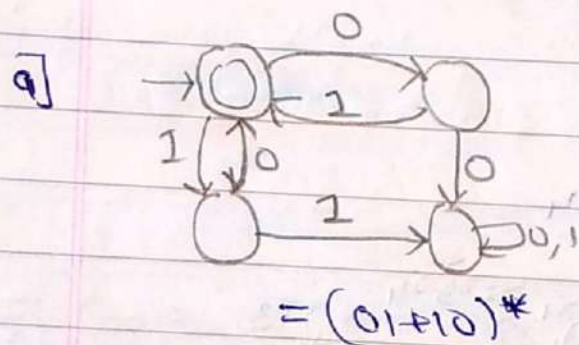 a]
0
1
1 0 0
1 0,1
= (01+10)*